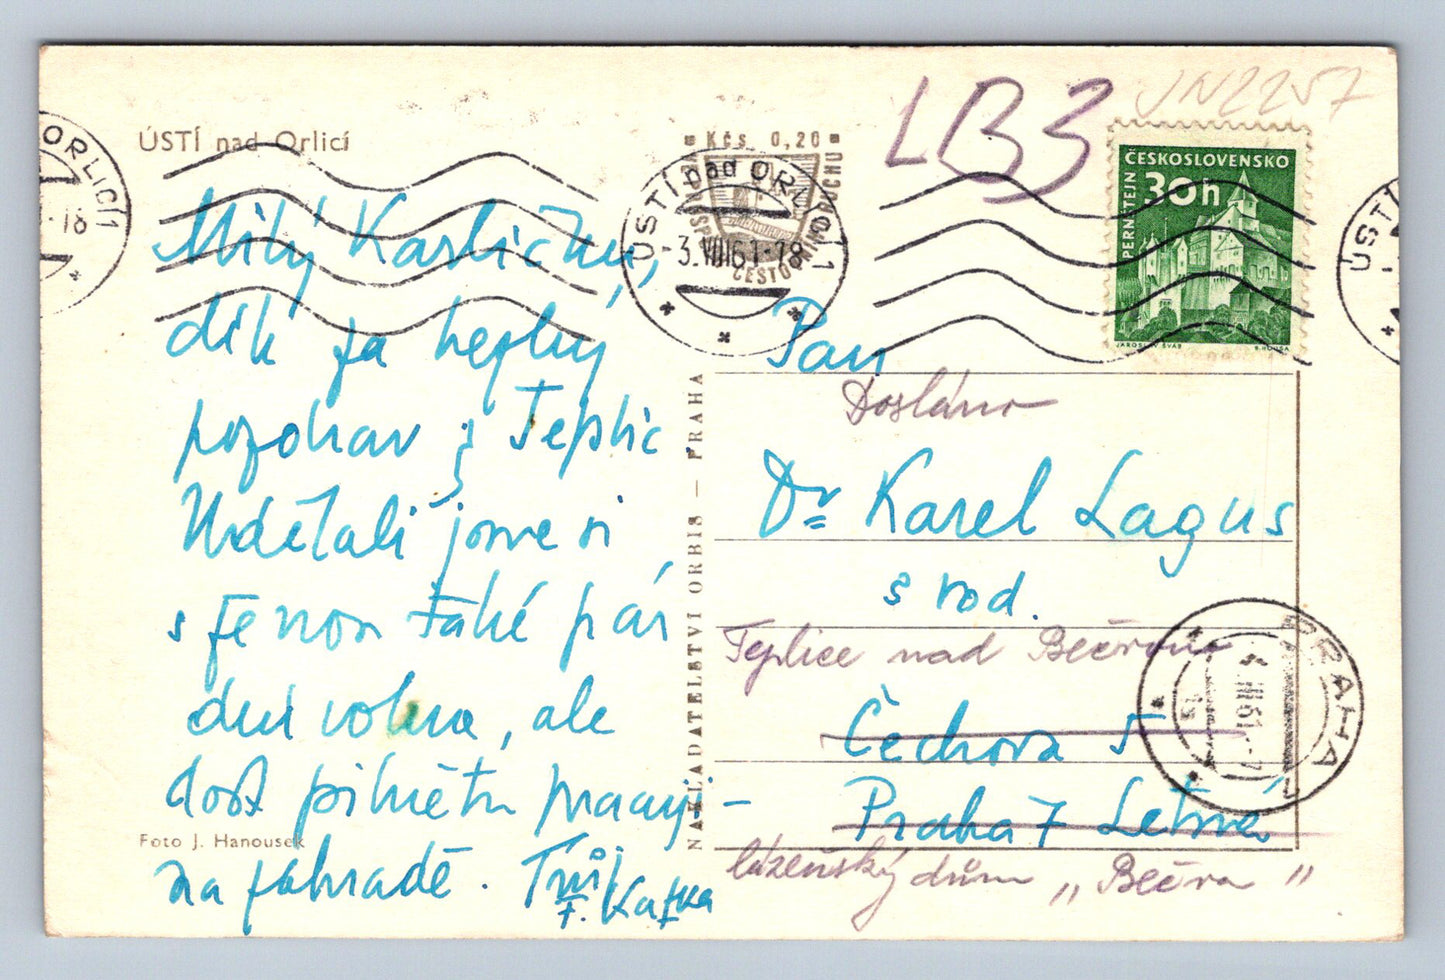 ÚSTÍ nad Orlicí
Milý Karlíčku,
dík za hezký
pozdrav z Teplic.
Udělali jsme si
s ženou také pár
dní volna, ale
dost pilně tu pracuji –
na zahradě. Tvůj
F. Kafka
Foto J. Hanousek
NAKLADATELSTVÍ ORBIS – PRAHA
Kčs 0,20
ÚSTÍ nad ORLICÍ 1
-3.VIII 61-18
LB3
UN2257
ČESKOSLOVENSKO
30h
PERNŠTEJN
JAROSLAV ŠVÁB
ORLICÍ 1
-18
ÚSTÍ
Pan
Dosláno
Dr. Karel Lagus
s rod.
Teplice nad Bečvou
Čechova 5
Praha 7 Letná
lázeňský dům „Bečva"
PRAHA